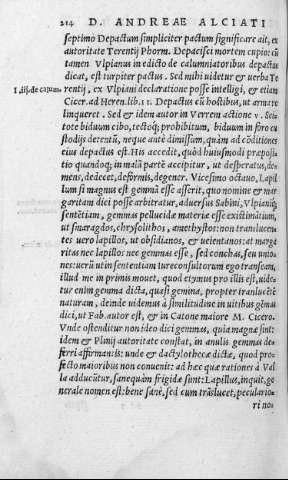 214 D. ANDREAE ALCIATI
septimo Depactum simpliciter pactum significare ait, ex
autoritate Terentij Phorm. Depacisci mortem cupio: cũ
tamen Vlpianus in edicto de calumniatoribus depactus
dicat, est turpiter pactus. Sed mihi uidetur & uerba Te
l iij. de calum rentij, ex Vlpiani declaratione posse intelligi, & etiam
Cicer. ad Heren. lib. 11. Depactus cũ hostibus, ut arma re
linqueret. Sed & idem autor in Verrem actione v. Sei=
tote biduum cibo, tectoq; prohibitum, biduum in foro cu
stodijs detentũ, neque antè dimissum, quàm ad cõditiones
eius depactus est. His accedit, quòd huiusmodi præposi
tio quandoq; in malã partẽ accipitur, ut desperatus, de=
mens, dedecet, deformis, degener. Vicesimo octauo, Lapil
lum si magnus est gemmã esse asserit, quo nomine & mar
garitam dici posse arbitratur, aduersus Sabini, Vlpianiq;
sentẽtiam, gemmas pellucidæ materiæ esse existimãtium,
ut smaragdos, chrysolithos, amethystos: non translucen=
tes uero lapillos, ut obsidianos, & ueientanos: at marga
ritas nec lapillos nec gemmas esse, sed conchas, seu unio=
nes: uerũ ut in sententiam iureconsultorum ego transeam,
illud me in primis mouet, quod etymus pro illis est, uide=
tur enim gemma dicta, quasi gemina, propter tranlucẽtẽ
naturam, deinde uidemus à similitudine in uitibus gẽmã
dici, ut Fab. autor est, & in Catone maiore M. Cicero.
Vnde ostenditur non ideo dici gemmas, quia magnæ sint:
idem & Plinij autoritate constat, in anulis gemmas de=
ferri affirmantis: unde & dactylothecæ dictæ, quod pro=
fecto maioribus non conuenit: ad hæc quæ rationes à Val
la adducũtur, sanequàm frigidæ sunt: Lapillus, inquit, ge
nerale nomen est: bene sanè, sed cum trãslucet, peculario=
ri no=